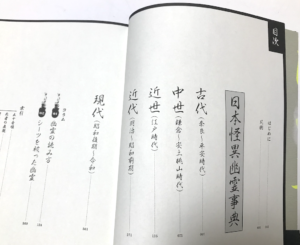 目次
はじめに
凡例
日本怪異幽霊事典
古代(奈良~平安時代)
中世(鎌倉~安土桃山時代)
近世(江戸時代)
近代(明治~昭和前期)
現代(昭和後期~令和)
幽霊の読み書
シーツを被った幽霊
索引